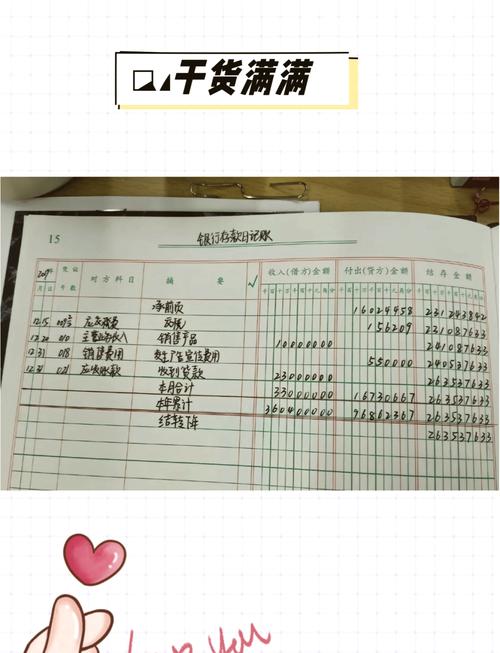 干货满满
15
银行存款日记账
2019年 凭证 对方科目 摘要 √ 收入(借方)金额 付出(贷方)金额 结存金额
月 日 号数 千百十万千百十元角分 千百十万千百十元角分 千百十万千百十元角分
承前页 16024458 231243842
12.15 应交税费 交税 156209 231087633
12.20 010 主营业务收入 销售产品 10000000 241087633
12.31 018 销售费用 支付广告宣传费用 550000 240537633
12.31 021 应收账款 收到货款 23000000 263537633
本月合计 33000000 16730667 263537633
本年累计 360400000 96862367 263537633
结转下年 263537633